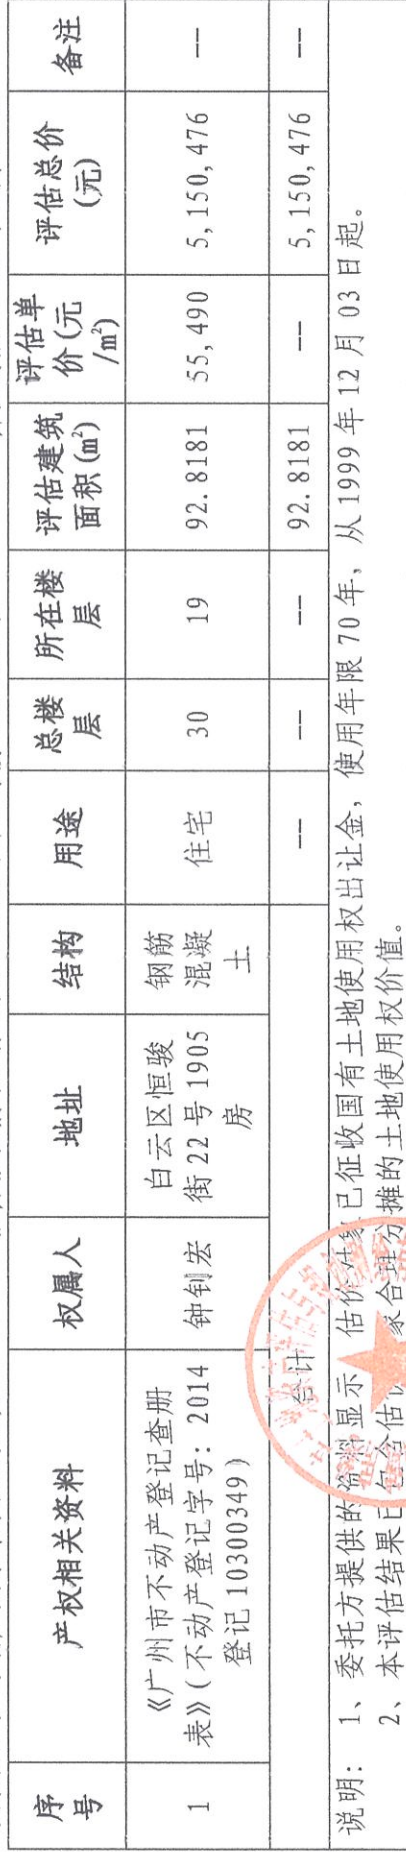 序号
产权相关资料
权属人
地址
结构
用途
总楼层
所在楼层
评估建筑面积(m²)
评估单价(元/m²)
评估总价(元)
备注
1
《广州市不动产登记查册
表》(不动产登记字号：2014
登记 10300349)
钟钊宏
白云区恒骏
街 22 号 1905
房
钢筋
混凝
土
住宅
30
19
92.8181
55,490
5,150,476
--
合计
--
--
--
92.8181
--
5,150,476
--
说明：1、委托方提供的资料显示 估价对象已征收国有土地使用权出让金，使用年限 70 年，从 1999 年 12 月 03 日起。
2、本评估结果已包含估价 象合理分摊的土地使用权价值。